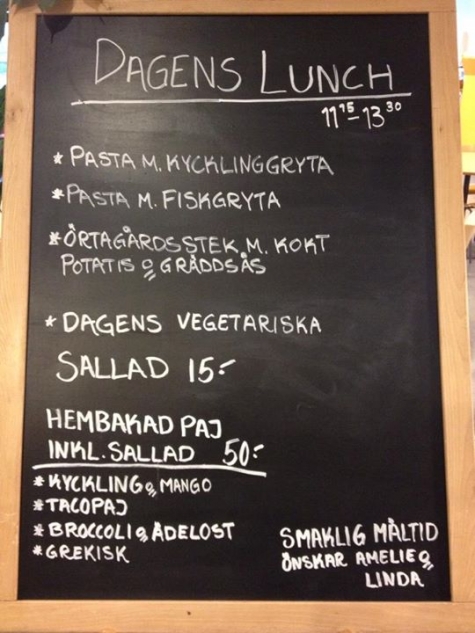 DAGENS LUNCH
11 15 - 13 30
* PASTA M. KYCKLINGGRYTA
* PASTA M. FISKGRYTA
* ÖRTAGÅRDSSTEK M. KOKT
POTATIS & GRÄDDSÅS
* DAGENS VEGETARISKA
SALLAD 15:-
HEMBAKAD PAJ
INKL. SALLAD 50:-
* KYCKLING & MANGO
* TACOPAJ
* BROCCOLI & ÄDELOST
* GREKISK
SMAKLIG MÅLTID
ÖNSKAR AMELIE &
LINDA